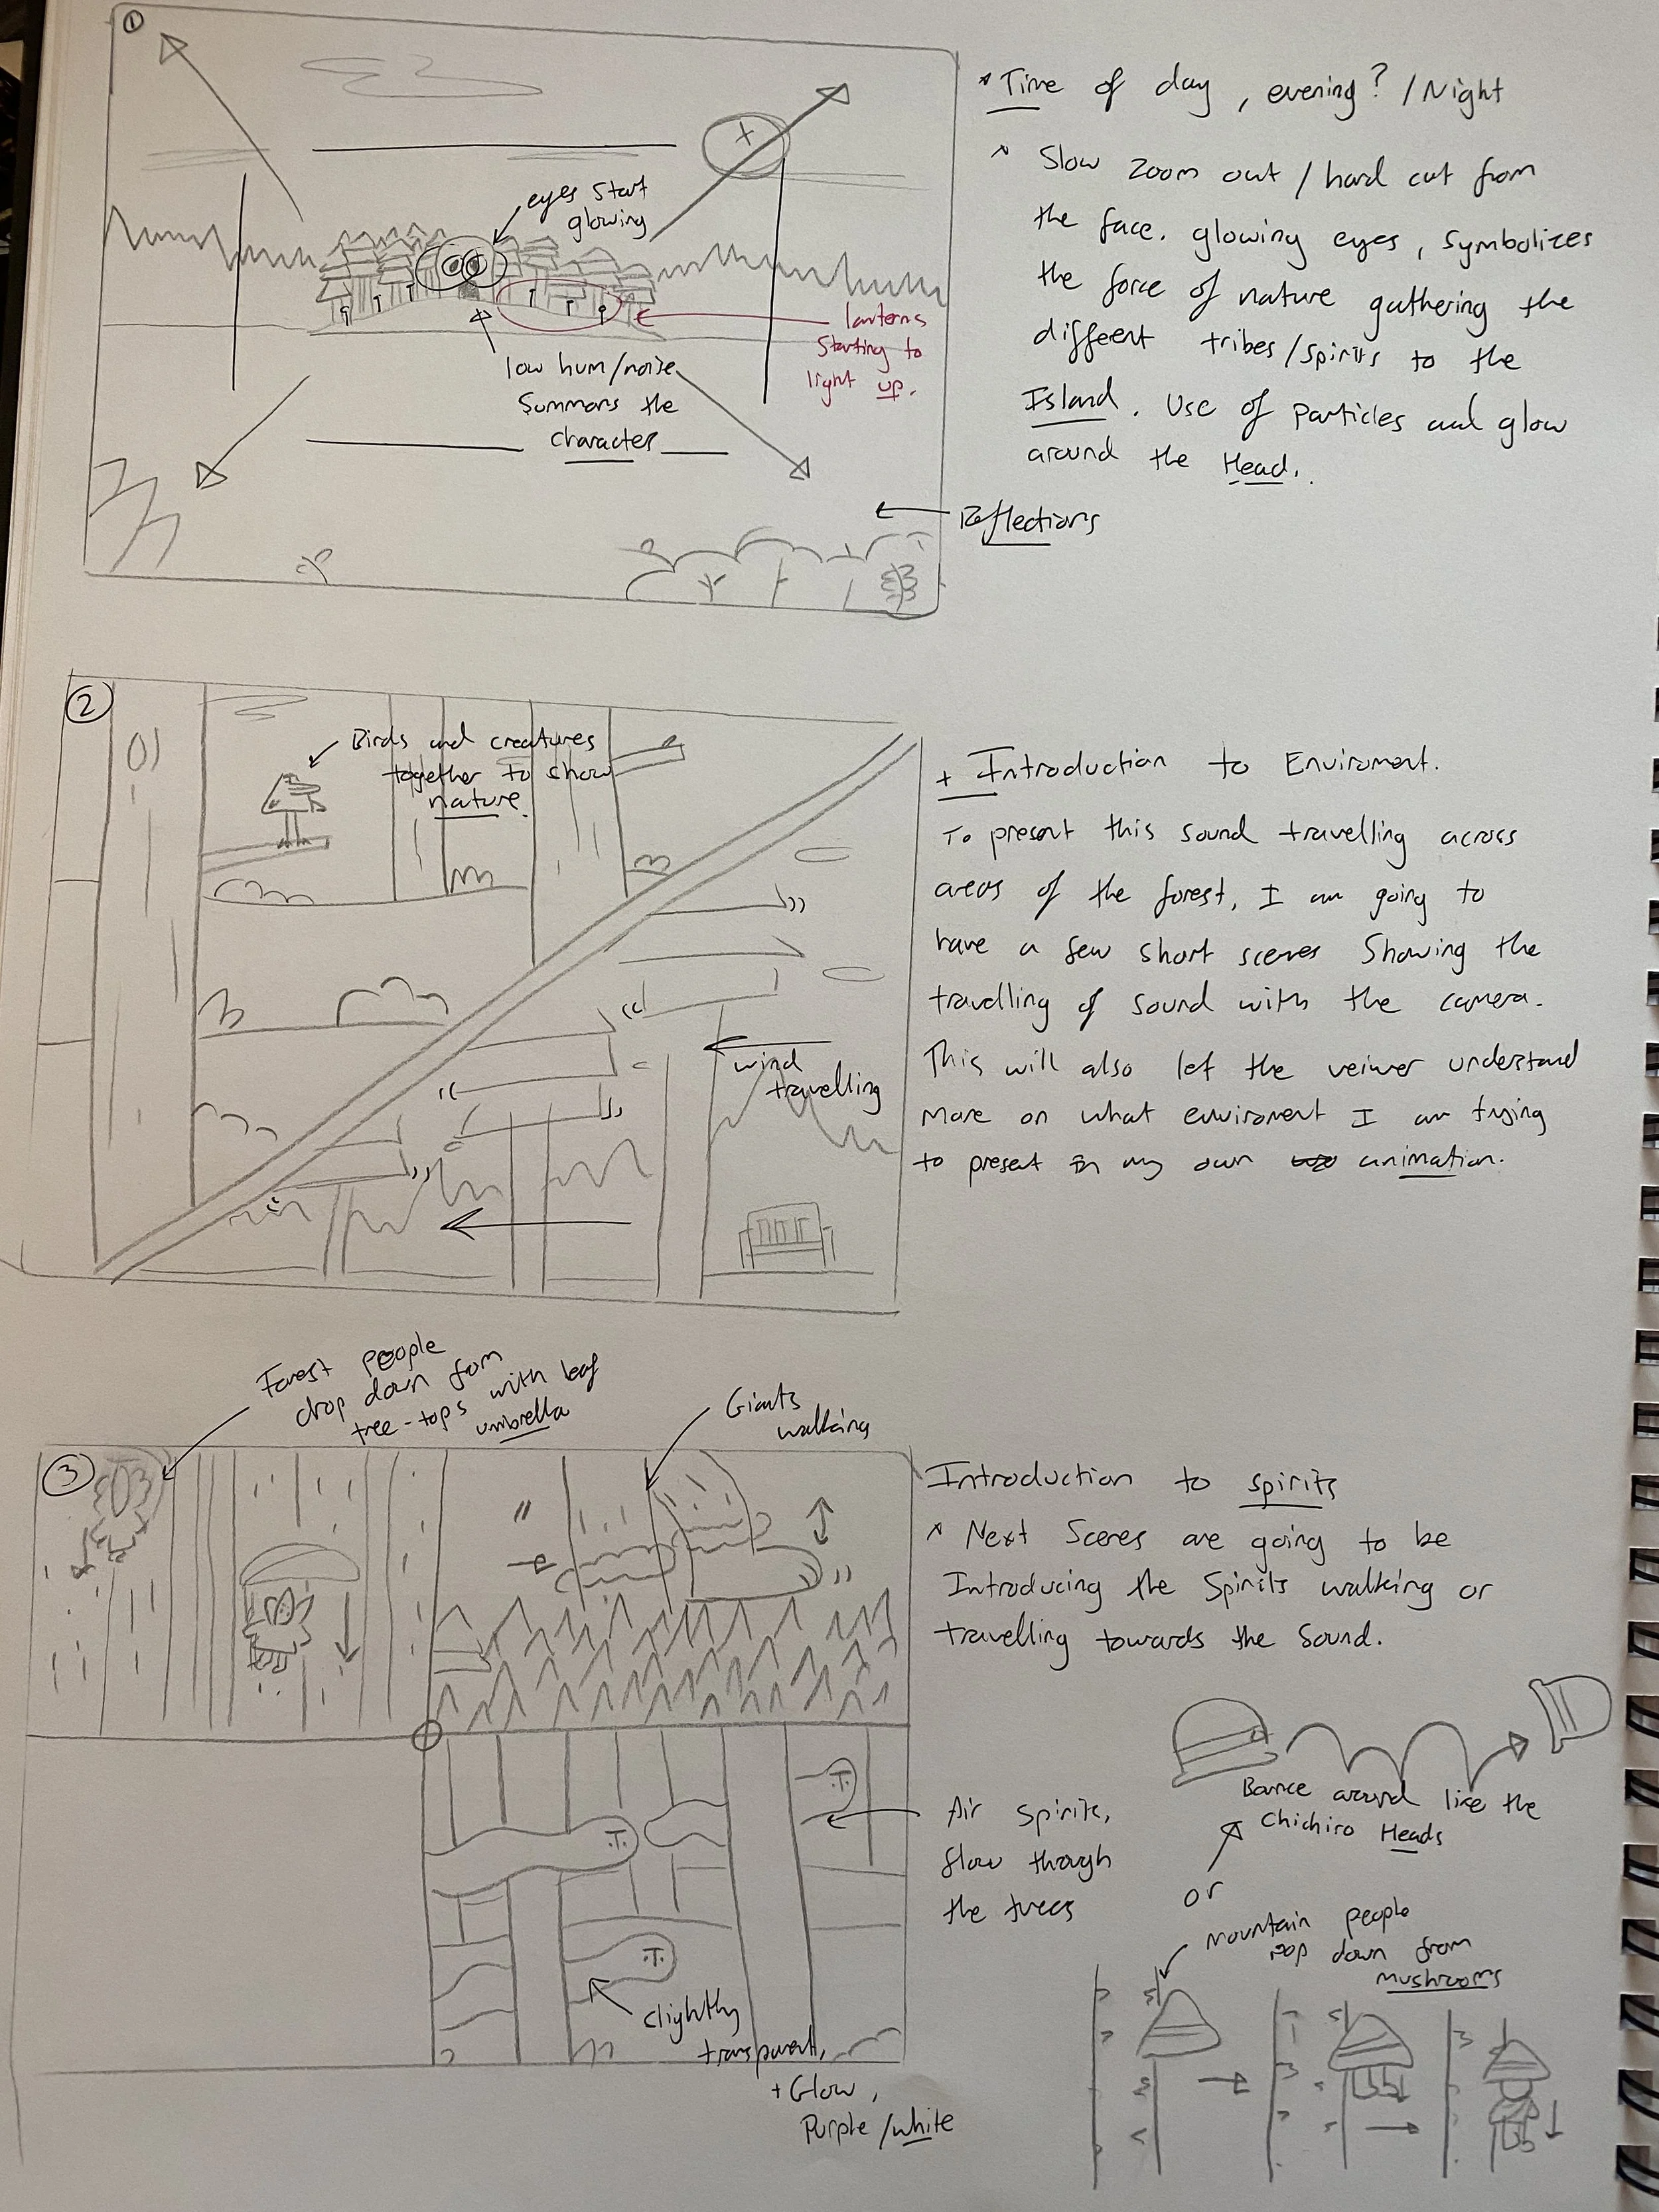 ①
eyes start
glowing
lanterns
starting to
light up.
low hum/noise
summons the
character
* Time of day, evening? / Night
* Slow zoom out / hard cut from
the face. glowing eyes, symbolizes
the force of nature gathering the
different tribes/spirits to the
Island. Use of particles and glow
around the Head.
Reflections
②
Birds and creatures
together to show
nature.
wind
travelling
+ Introduction to Enviroment.
To present this sound travelling across
areas of the forest, I am going to
have a few short scenes showing the
travelling of sound with the camera.
This will also let the veiwer understand
more on what enviroment I am trying
to present in my own animation.
Forest people
drop down from
tree-tops with leaf
umbrella
Giants
walking
③
Introduction to spirits
* Next Scenes are going to be
Introducing the Spirits walking or
travelling towards the Sound.
Bounce around like the
Chichiro Heads
or
mountain people
pop down from
mushrooms
Air spirits,
flow though
the trees
slightly
transparent,
+ Glow,
Purple/white